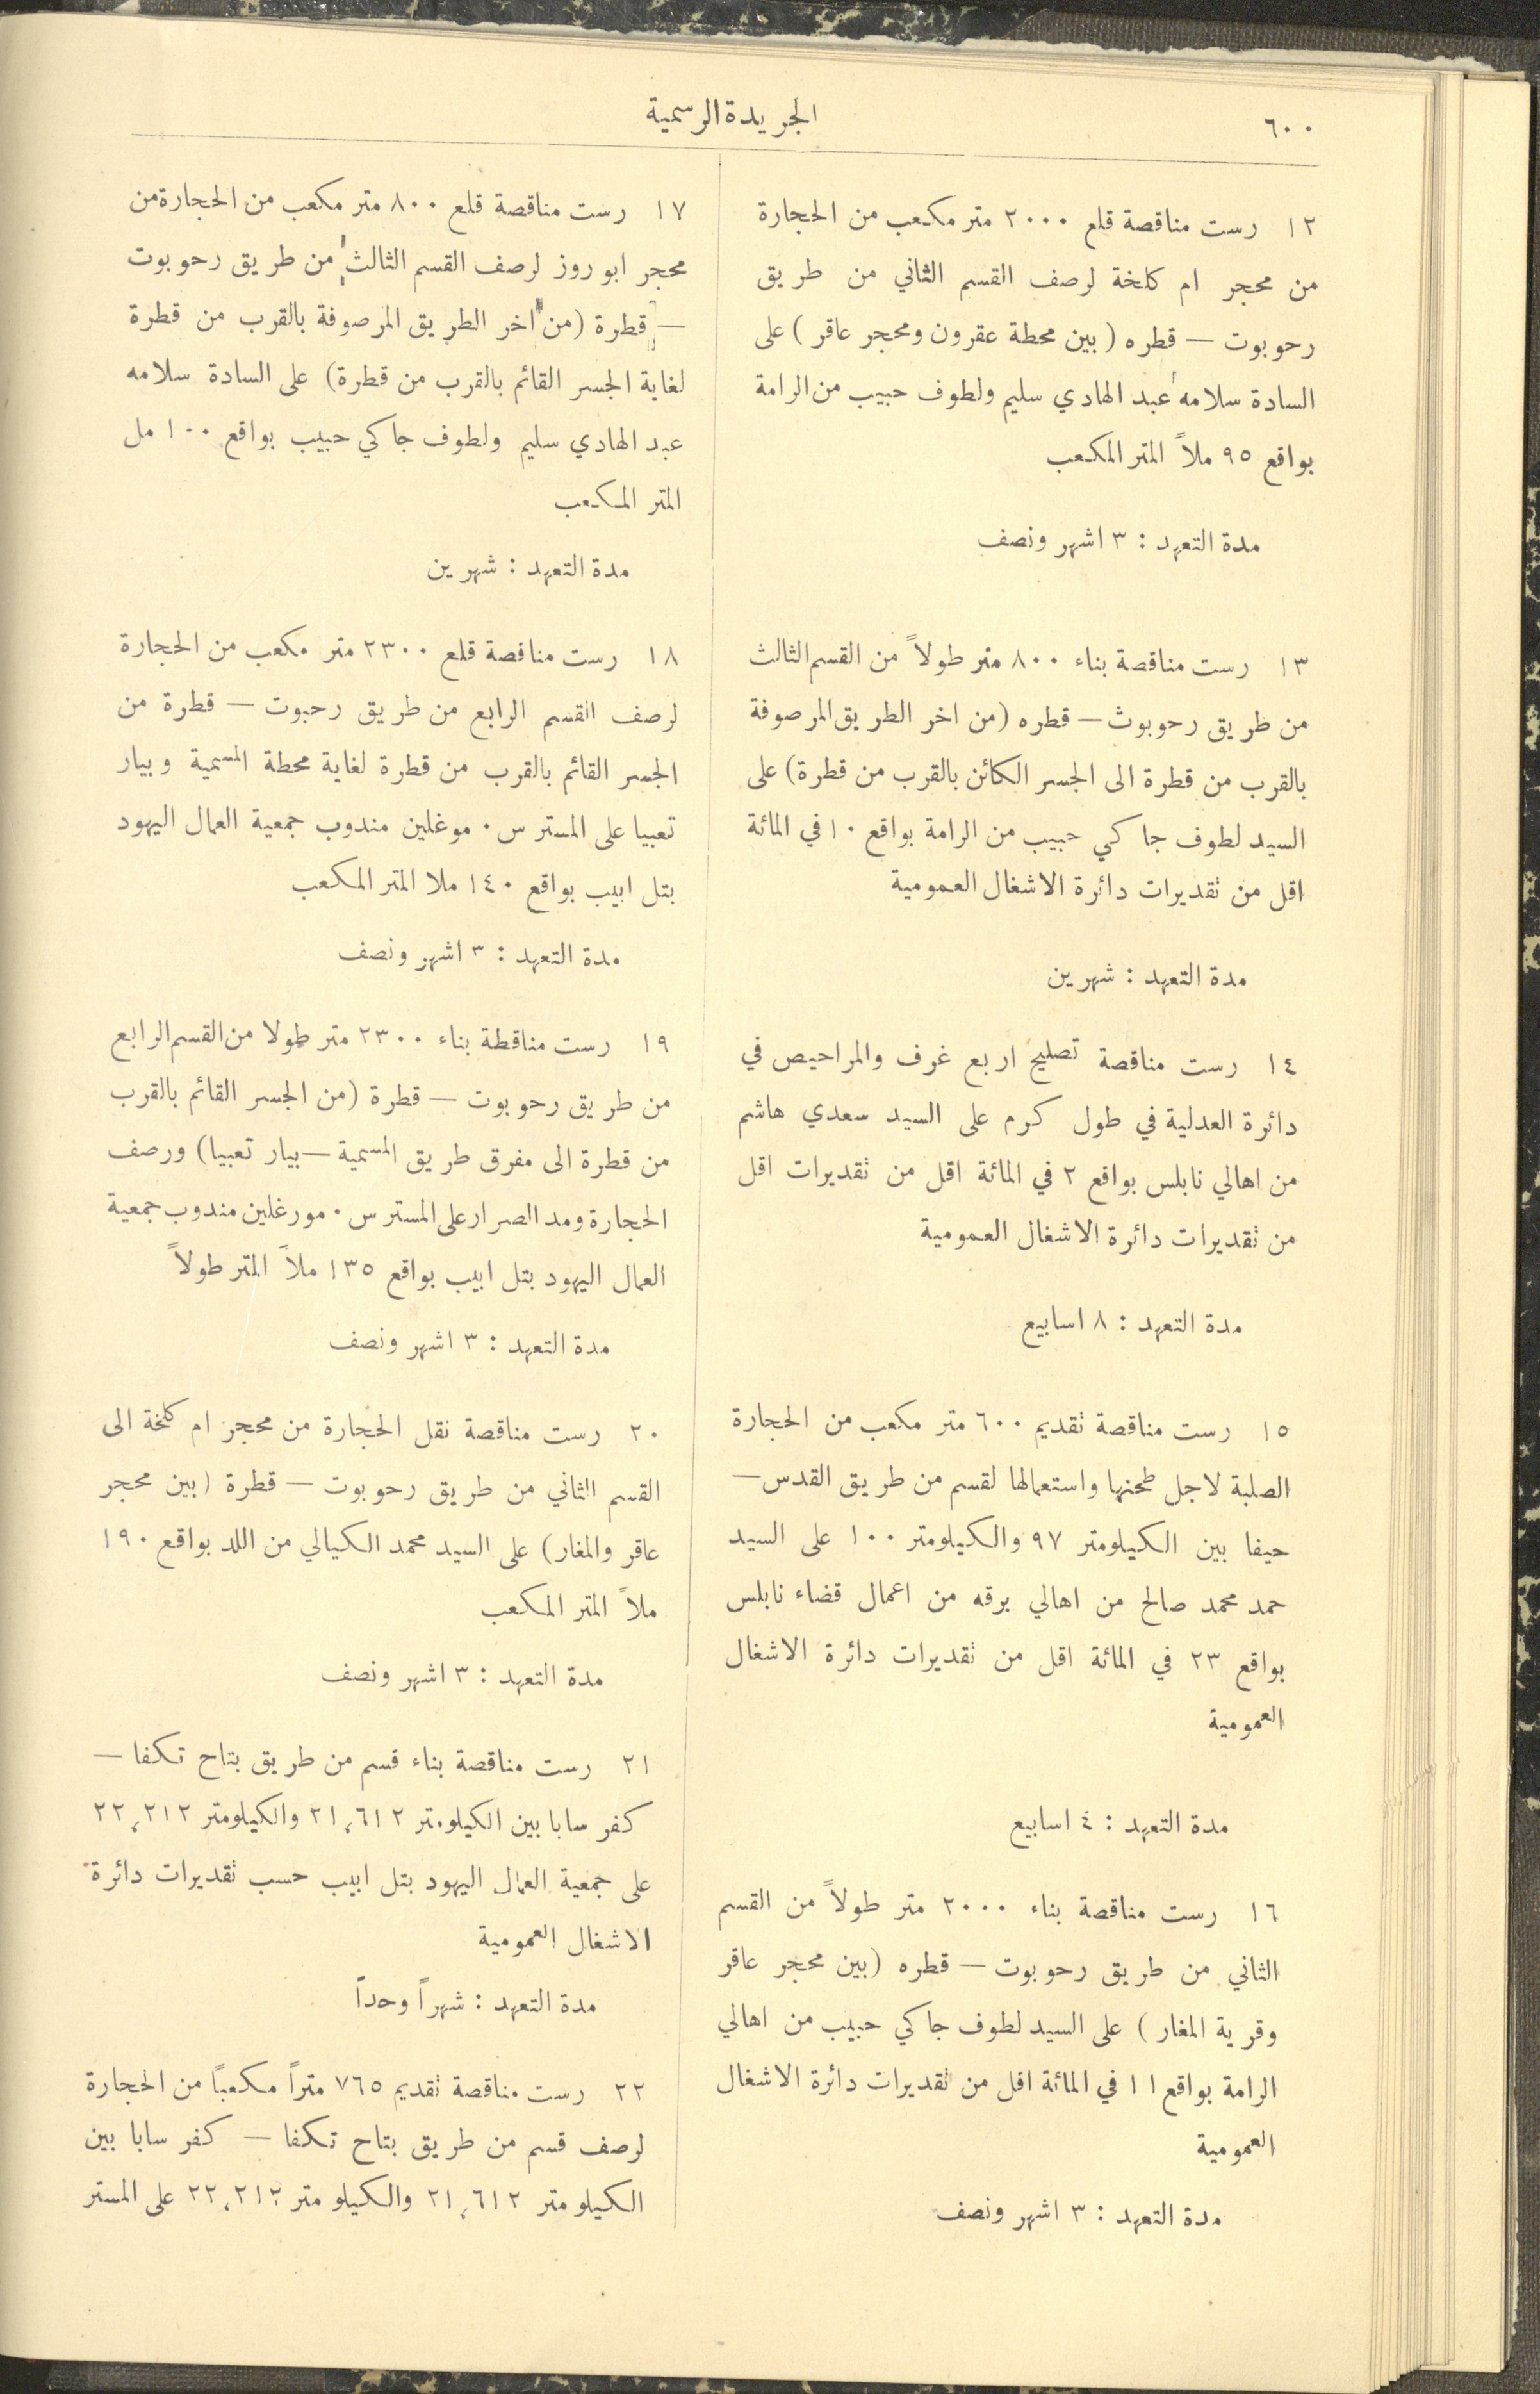 ٦٠٠
الجريدة الرسمية
١٢ رست مناقصة قلع ٢٠٠٠ متر مكعب من الحجارة
من محجر ام كلخة لرصف القسم الثاني من طريق
رحوبوت — قطره (بين محطة عقرون ومحجر عاقر) على
السادة سلامه عبد الهادي سليم ولطوف حبيب من الرامة
بواقع ٩٥ ملاً المتر المكعب
مدة التعهد : ٣ اشهر ونصف
١٣ رست مناقصة بناء ٨٠٠ متر طولاً من القسم الثالث
من طريق رحوبوث — قطره (من اخر الطريق المرصوفة
بالقرب من قطرة الى الجسر الكائن بالقرب من قطرة) على
السيد لطوف جاكي حبيب من الرامة بواقع ١٠ في المائة
اقل من تقديرات دائرة الاشغال العمومية
مدة التعهد : شهرين
١٤ رست مناقصة تصليح اربع غرف والمراحيص في
دائرة العدلية في طول كرم على السيد سعدي هاشم
من اهالي نابلس بواقع ٢ في المائة اقل من تقديرات اقل
من تقديرات دائرة الاشغال العمومية
مدة التعهد : ٨ اسابيع
١٥ رست مناقصة تقديم ٦٠٠ متر مكعب من الحجارة
الصلبة لاجل طحنها واستعمالها لقسم من طريق القدس —
حيفا بين الكيلومتر ٩٧ والكيلومتر ١٠٠ على السيد
حمد محمد صالح من اهالي برقه من اعمال قضاء نابلس
بواقع ٢٣ في المائة اقل من تقديرات دائرة الاشغال
العمومية
مدة التعهد : ٤ اسابيع
١٦ رست مناقصة بناء ٢٠٠٠ متر طولاً من القسم
الثاني من طريق رحوبوت — قطره (بين محجر عاقر
وقرية المغار) على السيد لطوف جاكي حبيب من اهالي
الرامة بواقع ١١ في المائة اقل من تقديرات دائرة الاشغال
العمومية
مدة التعهد : ٣ اشهر ونصف
١٧ رست مناقصة قلع ٨٠٠ متر مكعب من الحجارة من
محجر ابو روز لرصف القسم الثالث من طريق رحوبوت
— قطرة (من اخر الطريق المرصوفة بالقرب من قطرة
لغاية الجسر القائم بالقرب من قطرة) على السادة سلامه
عبد الهادي سليم ولطوف جاكي حبيب بواقع ١٠٠ مل
المتر المكعب
مدة التعهد : شهرين
١٨ رست مناقصة قلع ٢٣٠٠ متر مكعب من الحجارة
لرصف القسم الرابع من طريق رحبوت — قطرة من
الجسر القائم بالقرب من قطرة لغاية محطة المسمية وبيار
تعبيا على المستر س٠ موغلين مندوب جمعية العمال اليهود
بتل ابيب بواقع ١٤٠ ملا المتر المكعب
مدة التعهد : ٣ اشهر ونصف
١٩ رست مناقطة بناء ٢٣٠٠ متر طولا من القسم الرابع
من طريق رحوبوت — قطرة (من الجسر القائم بالقرب
من قطرة الى مفرق طريق المسمية — بيار تعبيا) ورصف
الحجارة ومد الصرار على المستر س٠ مورغلين مندوب جمعية
العمال اليهود بتل ابيب بواقع ١٣٥ ملاً المتر طولاً
مدة التعهد : ٣ اشهر ونصف
٢٠ رست مناقصة نقل الحجارة من محجر ام كلخة الى
القسم الثاني من طريق رحوبوت — قطرة (بين محجر
عاقر والمغار) على السيد محمد الكيالي من اللد بواقع ١٩٠
ملاً المتر المكعب
مدة التعهد : ٣ اشهر ونصف
٢١ رست مناقصة بناء قسم من طريق بتاح تكفا —
كفر سابا بين الكيلومتر ٢١،٦١٢ والكيلومتر ٢٢،٢١٢
على جمعية العمال اليهود بتل ابيب حسب تقديرات دائرة
الاشغال العمومية
مدة التعهد : شهراً وحداً
٢٢ رست مناقصة تقديم ٧٦٥ متراً مكعبًا من الحجارة
لرصف قسم من طريق بتاح تكفا — كفر سابا بين
الكيلو متر ٢١،٦١٢ والكيلو متر ٢٢،٢١٢ على المستر